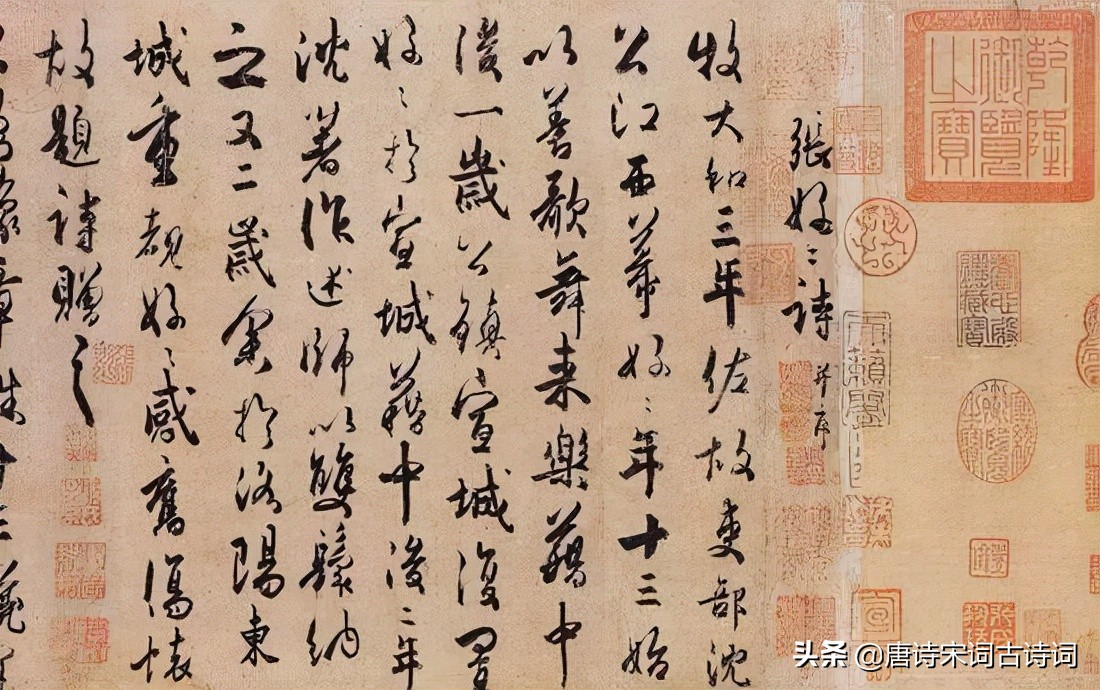 乾隆御覽之寶
張好〻詩 并序
牧大和三年佐故吏部沈
公江西幕好〻年十三始
以善歌舞来樂籍中
後一歲公鎮宣城復置
好〻於宣城籍中後二年
沈著作述師以雙鬟納
之又二歲余於洛陽東
城重覩好〻感舊傷懷
故題詩贈之
头条 @唐诗宋词古诗词